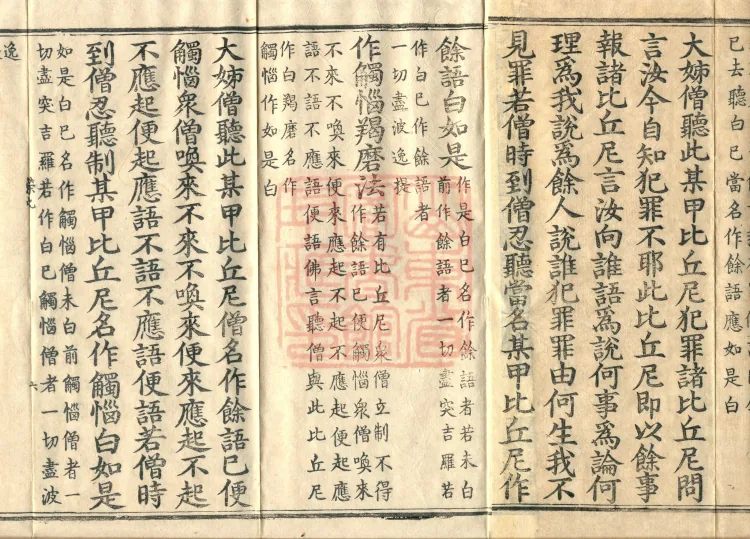 已去聽白已當名作餘語應如是白
大姊僧聽此某甲比丘尼犯罪諸比丘尼問
言汝今自知犯罪不耶此比丘尼即以餘事
報諸比丘尼言汝向誰語爲說何事爲論何
理爲我說爲餘人說誰犯罪罪由何生我不
見罪若僧時到僧忍聽當名某甲比丘尼作
餘語白如是
作是白已名作餘語者若未白
前作餘語者一切盡突吉羅若
作白已作餘語者
一切盡波逸提
作觸惱羯磨法
若有比丘尼衆僧立制不得
作餘語已便觸惱衆僧喚來
不來不喚來便來應起不起不應起便起應
語不語不應語便語佛言聽僧與此比丘尼
作白羯磨名作
觸惱作如是白
大姊僧聽此某甲比丘尼僧名作餘語已便
觸惱衆僧喚來不來不喚來便來應起不起
不應起便起應語不語不應語便語若僧時
到僧忍聽制某甲比丘尼名作觸惱白如是
六
如是白已名作觸惱僧未白前觸惱僧者一
切盡突吉羅若作白已觸惱僧者一切盡波
逸